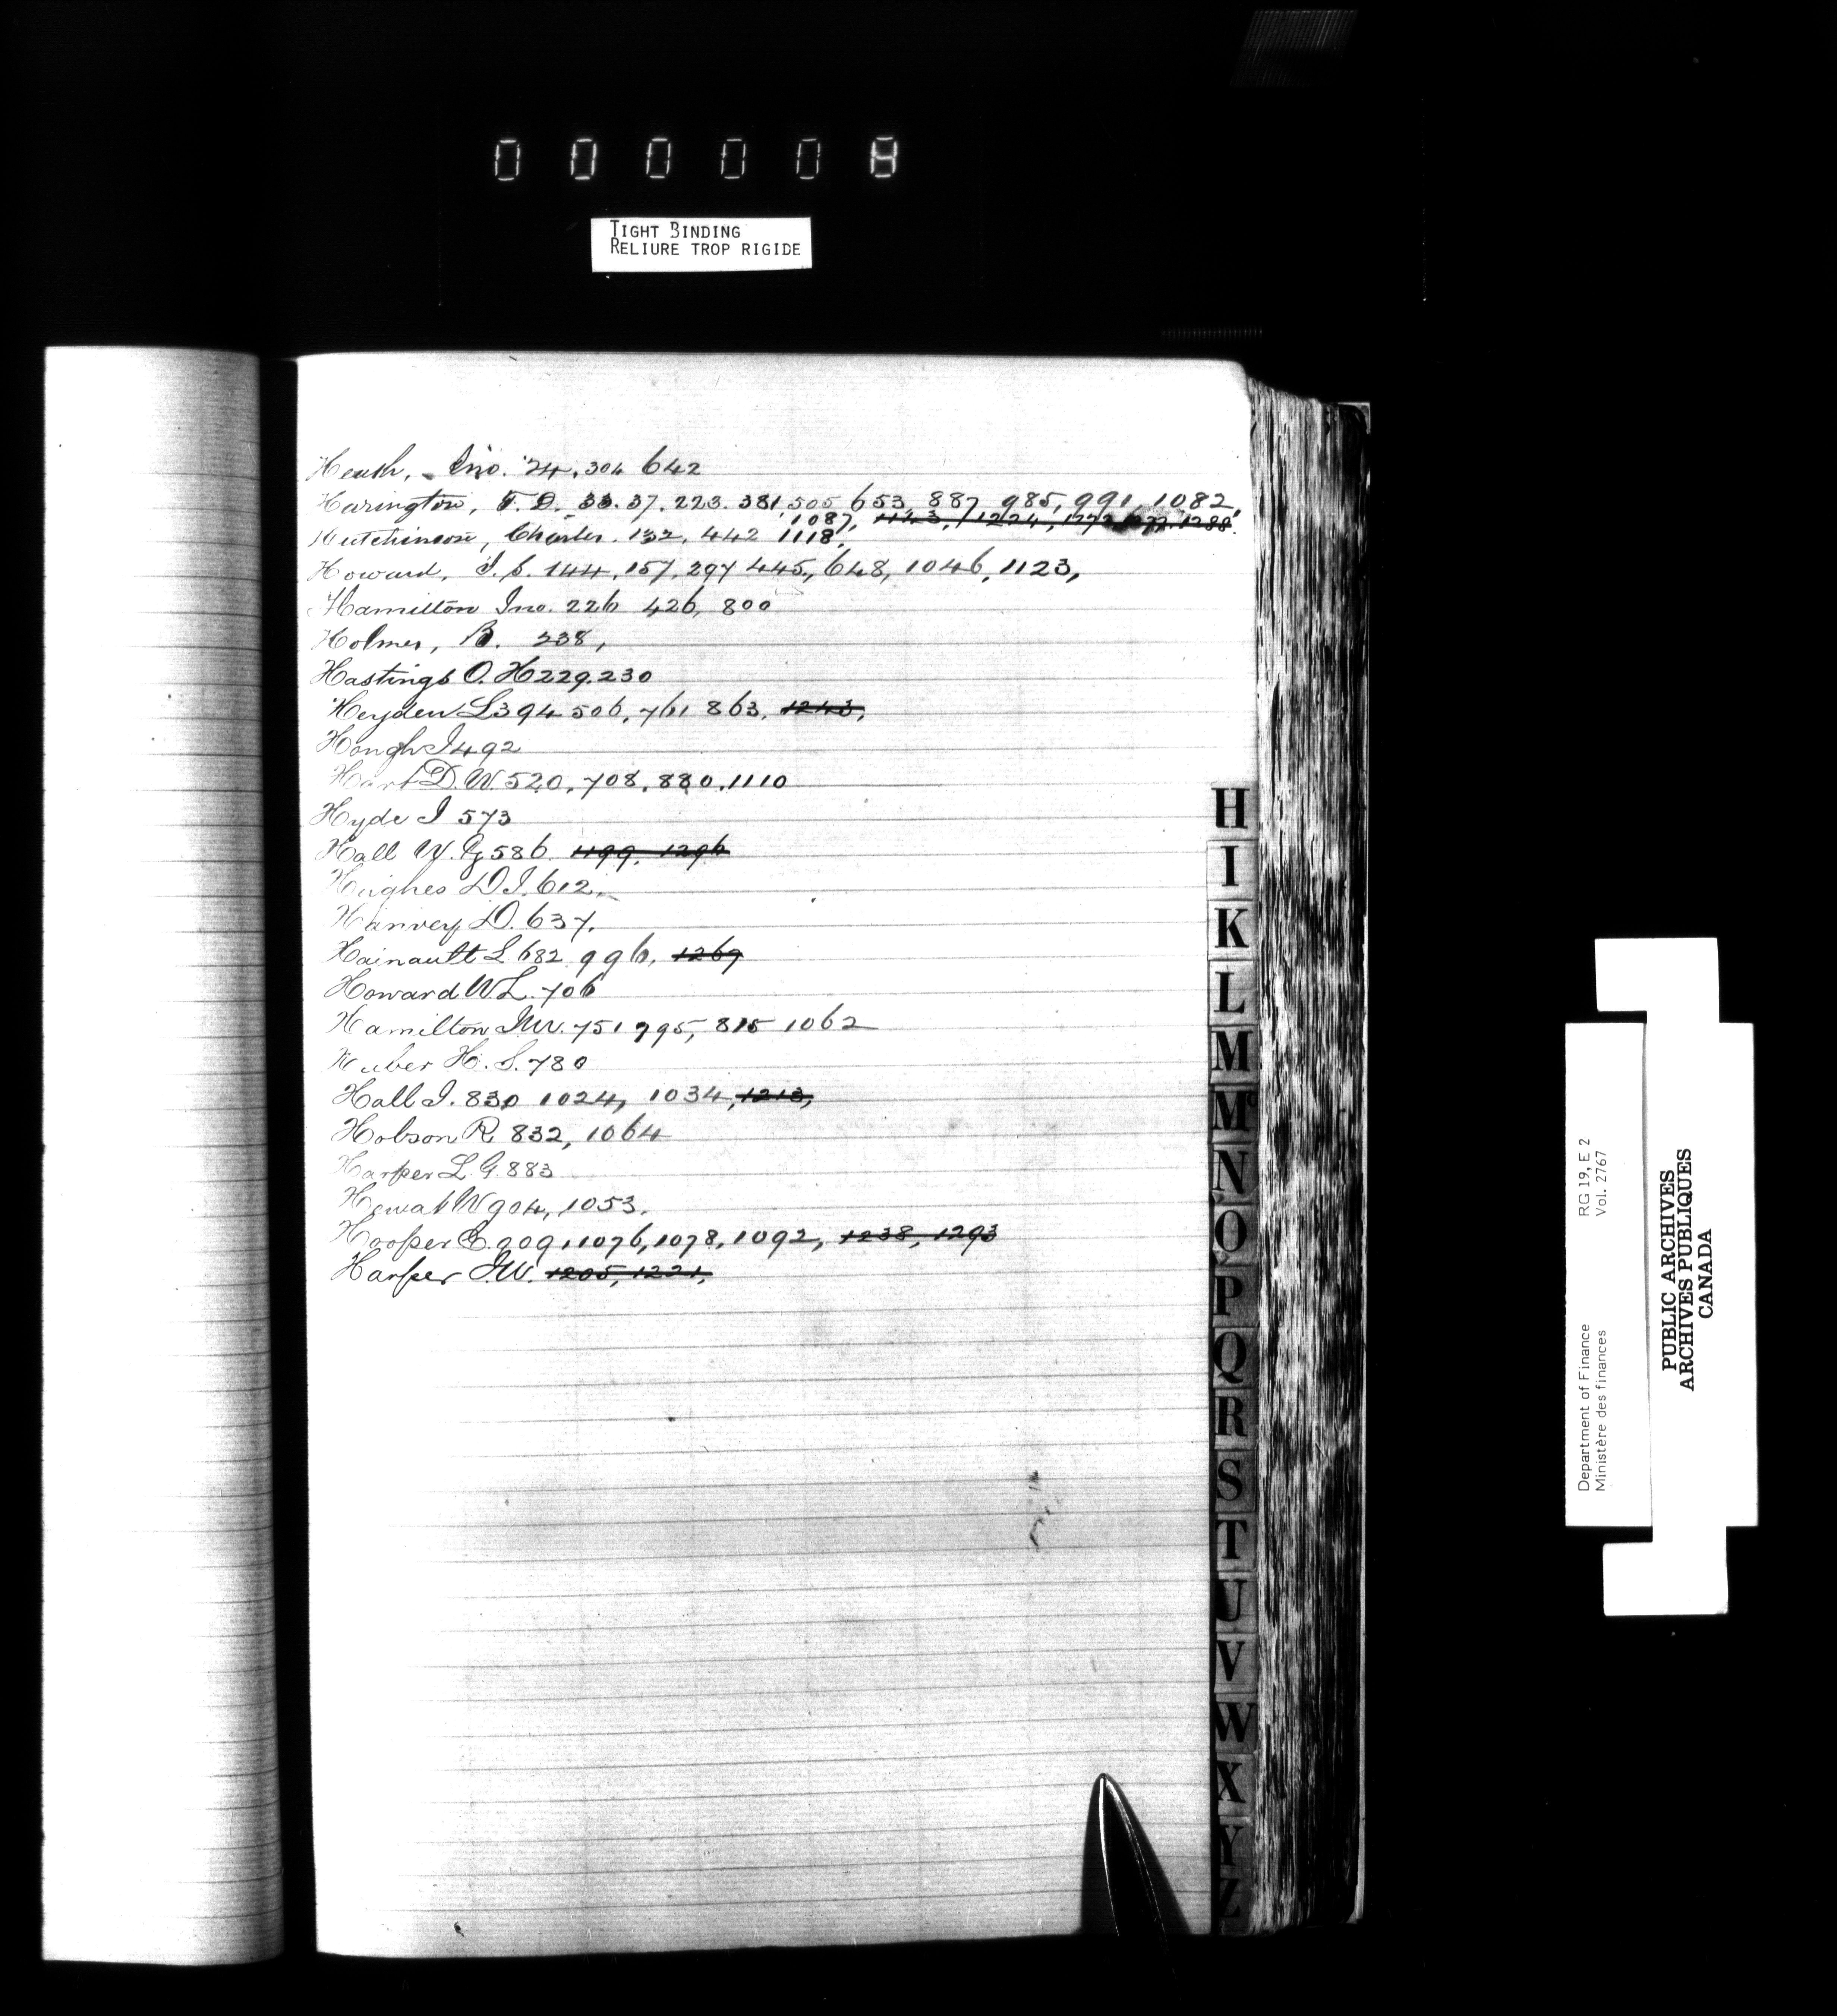 000008
TIGHT BINDING
RELIURE TROP RIGIDE
Heath, Jno. 24, 304 642
Harington, T. D. 33. 37. 223. 381, 505 653, 887, 985, 991, 1082,
1087, 1143, 1224, 1288.
Hutchinson, Charles. 132, 442 1118,
Howard, J. S. 144, 157, 297 445, 648, 1046, 1123,
Hamilton Jno. 226 426, 800
Holmes, B. 238,
Hastings O. H 229. 230
Heyden L 394 506, 761 863, 1243,
Hough J 492
Hart D. W. 520, 708, 880, 1110
Hyde J 573
Hall W. G 586. 1199, 1296
Hughes D J. 612,
Hanvey D. 637.
Hainault L 682 996, 1269
Howard W L. 706
Hamilton J W. 751 795, 815 1062
Huber H. S. 780
Hall J. 830 1024, 1034, 1213,
Hobson R 832, 1064
Harper L. G. 883
Hewat W 904, 1053.
Hooper E. 909, 1076, 1078, 1092, 1238, 1293
Harper J. W. 1205, 1221,
H
I
K
L
M
Mc
N
O
P
Q
R
S
T
U
V
W
X
Y
Z
Department of Finance
Ministère des finances
RG 19, E 2
Vol. 2767
PUBLIC ARCHIVES
ARCHIVES PUBLIQUES
CANADA